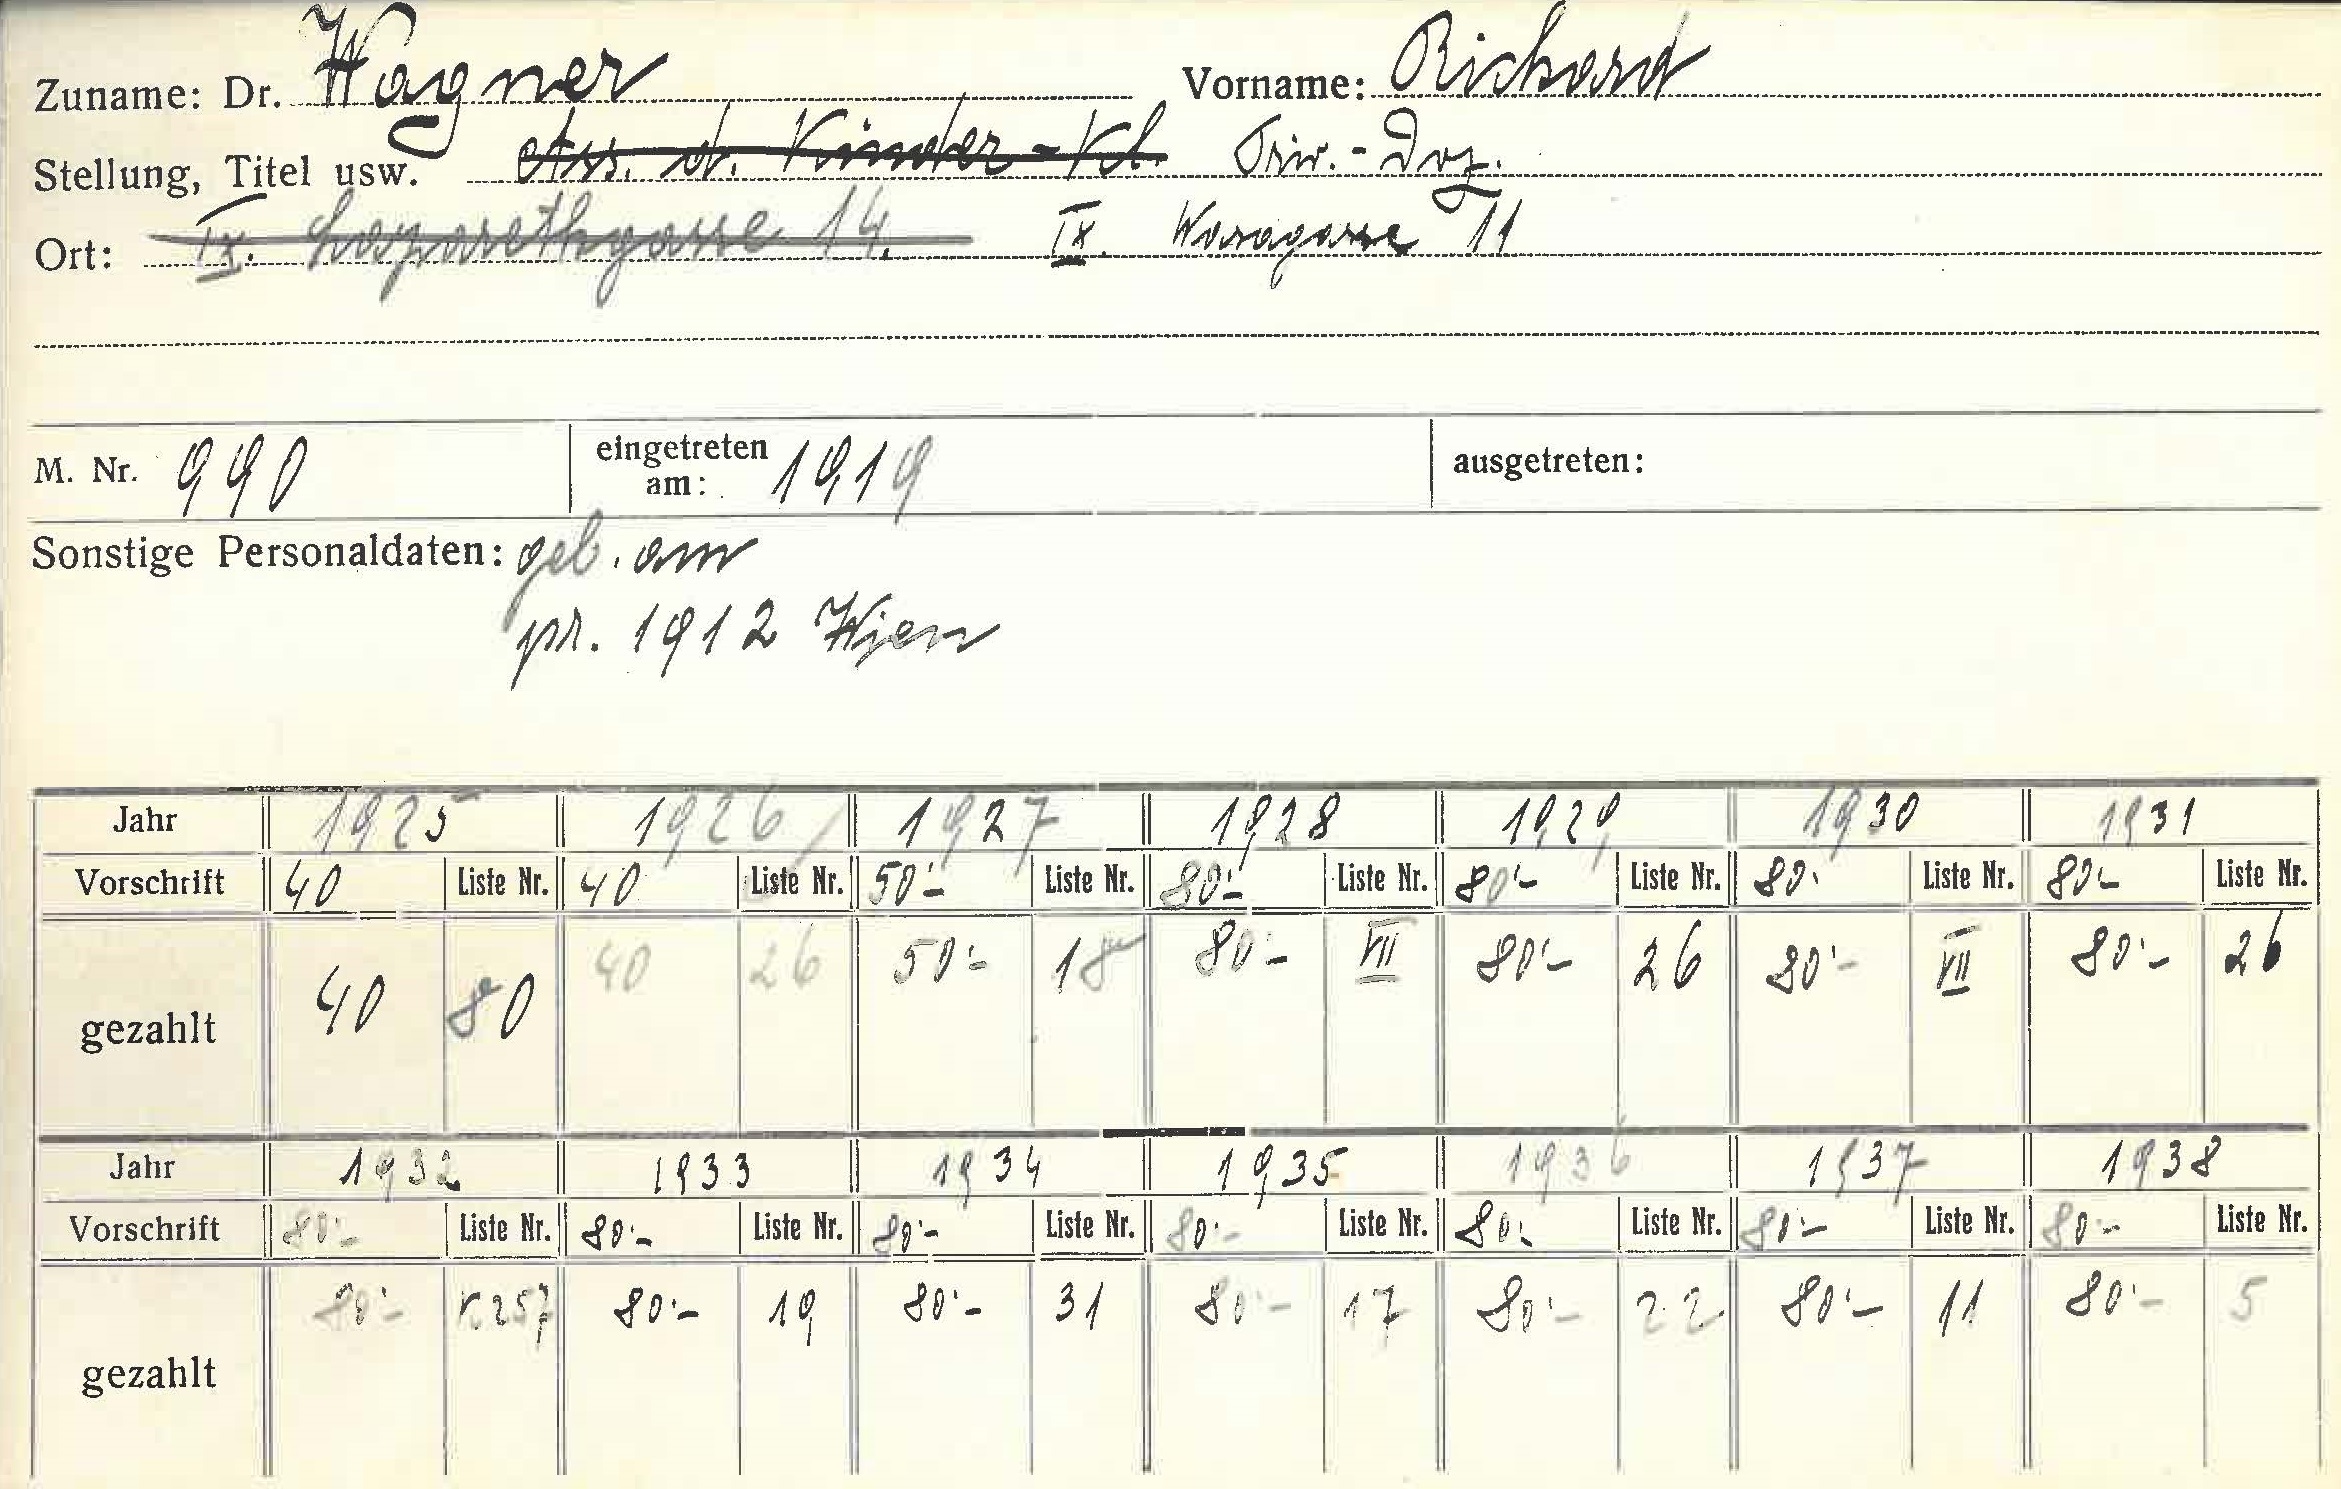 Zuname: Dr. Wagner Vorname: Richard
Stellung, Titel usw. Ass. d. Kinder-Kl. Priv.-Doz.
Ort: IX. Lazarethgasse 14. IX. Wasagasse 11
M. Nr. 990 eingetreten am: 1919 ausgetreten:
Sonstige Personaldaten: geb. am
pr. 1912 Wien
Jahr 1925 1926 1927 1928 1929 1930 1931
Vorschrift 40 Liste Nr. 40 Liste Nr. 50'- Liste Nr. 80'- Liste Nr. 80'- Liste Nr. 80' Liste Nr. 80'- Liste Nr.
gezahlt 40 80 40 26 50'- 18 80'- VII 80'- 26 80'- VII 80'- 26
Jahr 1932 1933 1934 1935 1936 1937 1938
Vorschrift 80'- Liste Nr. 80'- Liste Nr. 80'- Liste Nr. 80'- Liste Nr. 80'- Liste Nr. 80'- Liste Nr. 80'- Liste Nr.
gezahlt 80'- K257 80'- 19 80'- 31 80'- 17 80'- 22 80'- 11 80'- 5